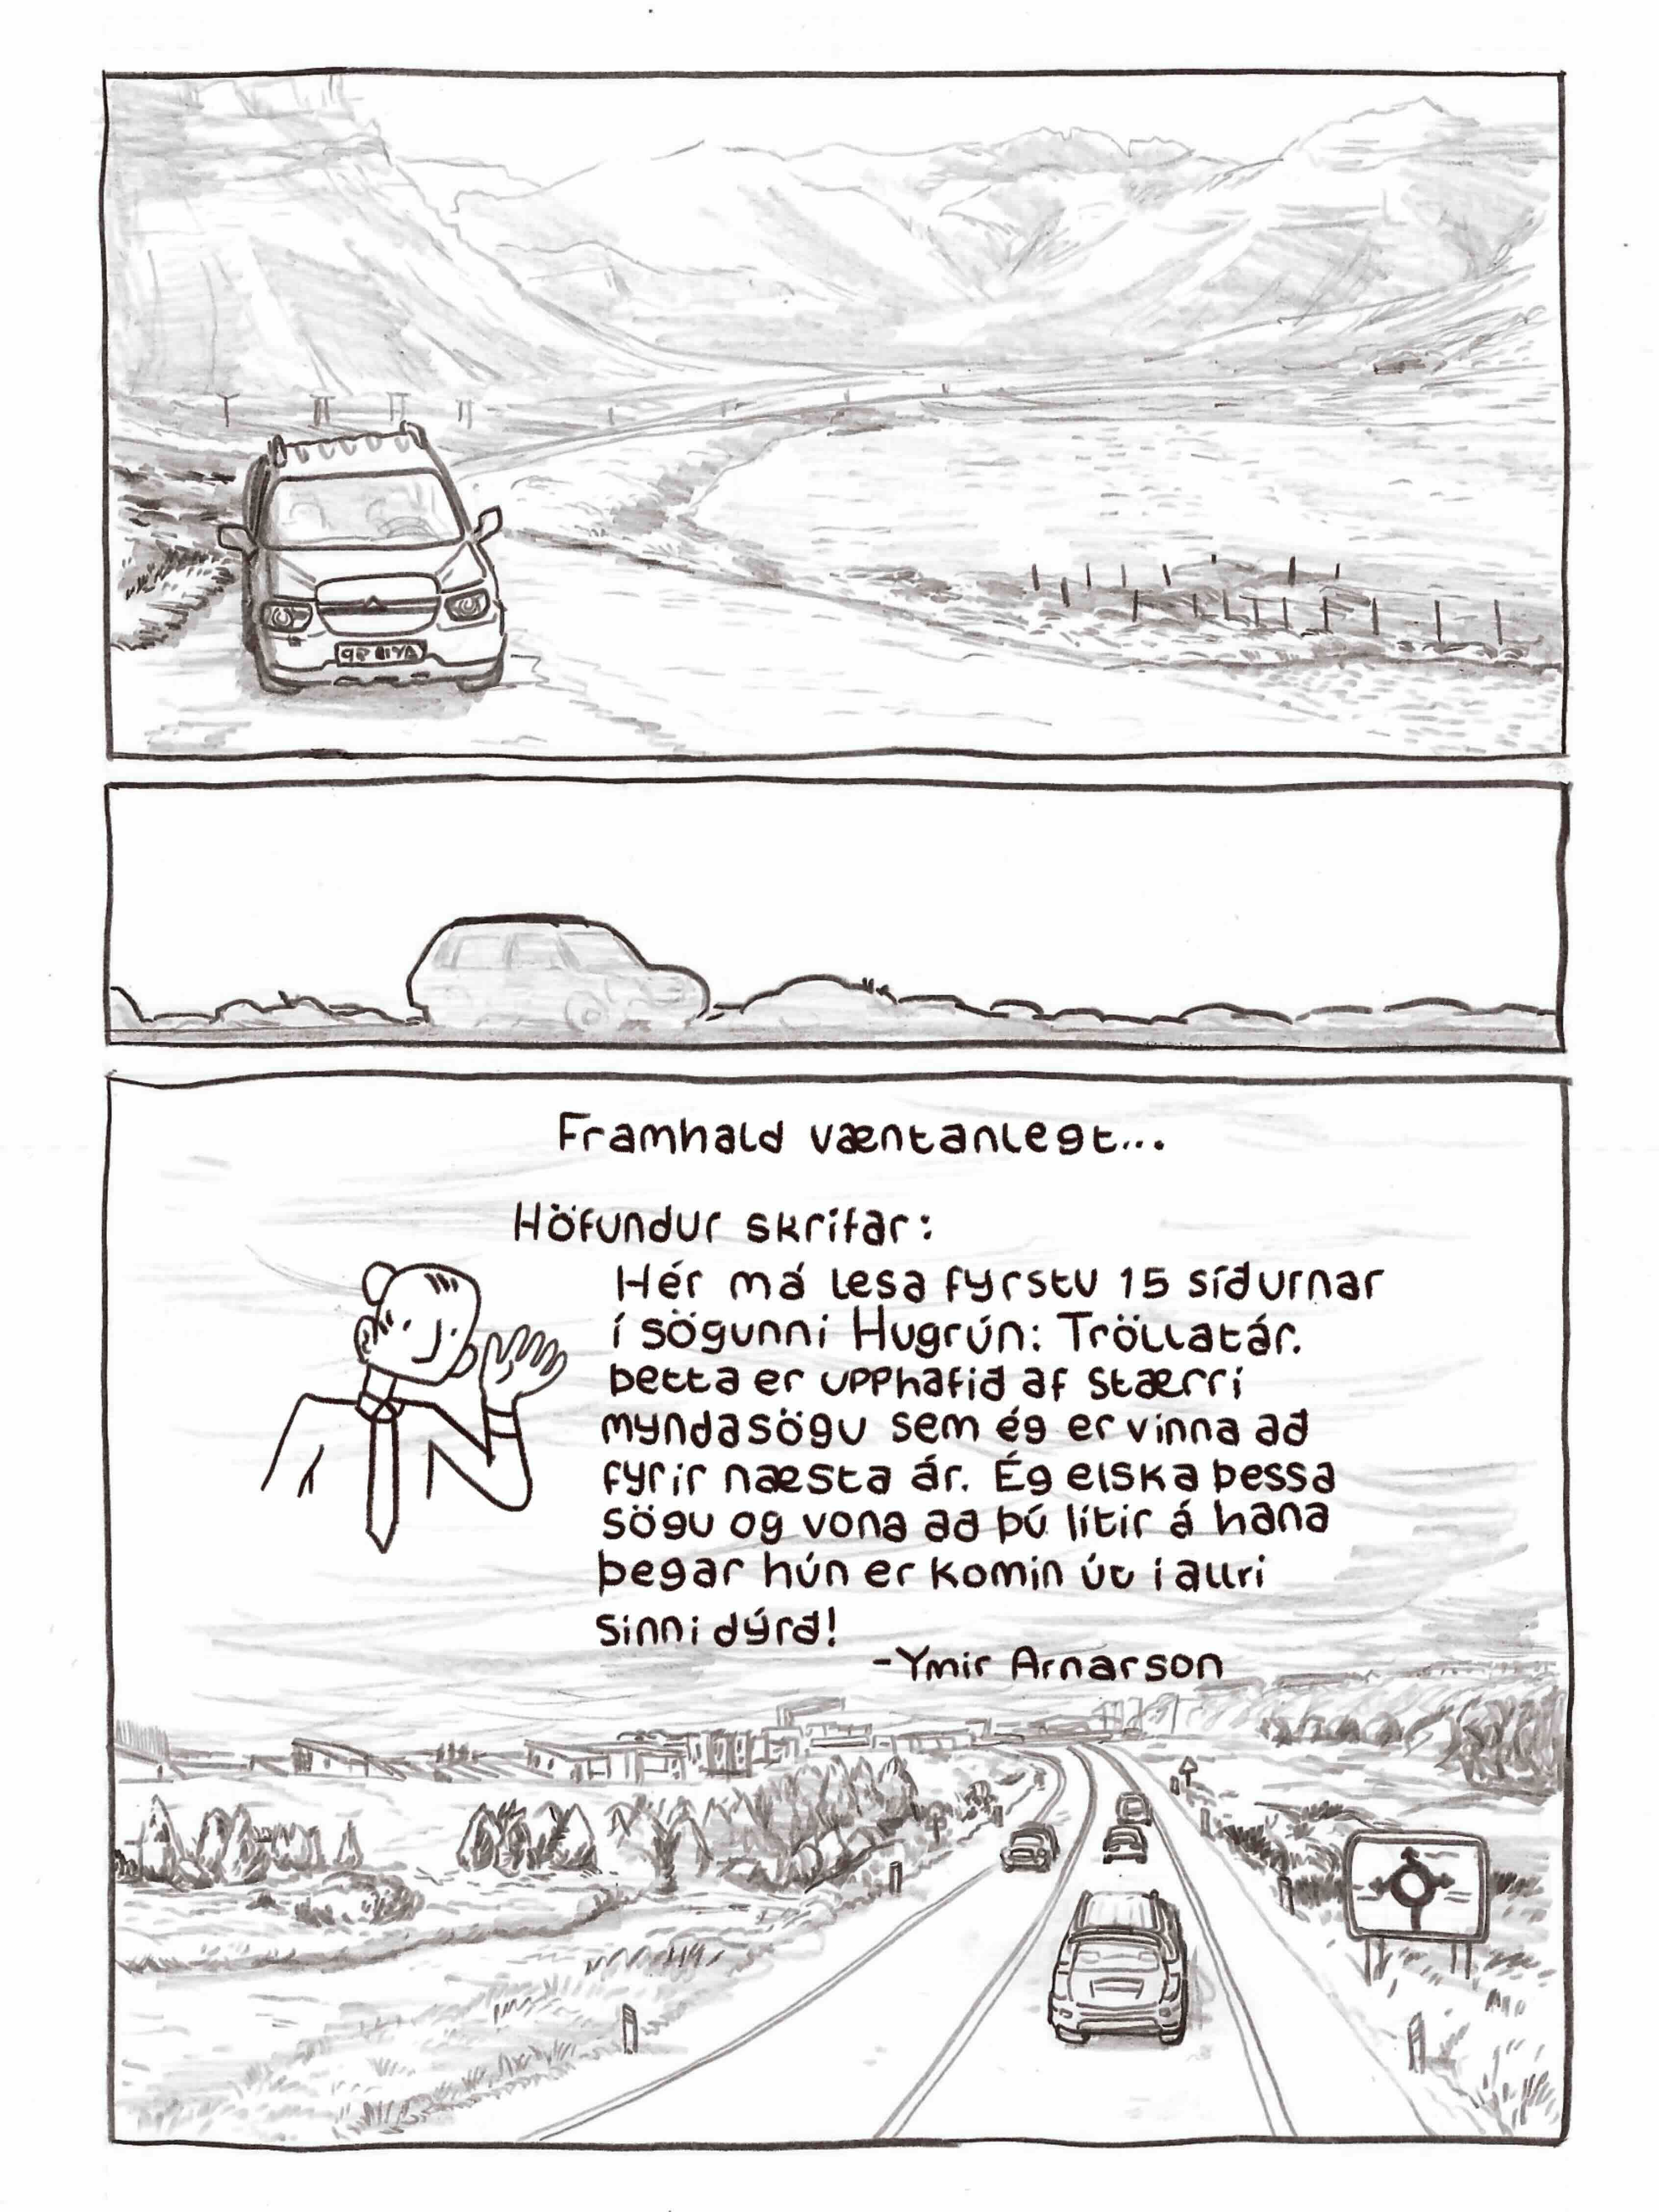 Framhald væntanlegt...
Höfundur skrifar:
Hér má lesa fyrstu 15 síðurnar
í sögunni Hugrún: Tröllatár.
Þetta er upphafið af stærri
myndasögu sem ég er vinna að
fyrir næsta ár. Ég elska þessa
sögu og vona að þú lítir á hana
þegar hún er komin út í allri
sinni dýrð!
-Ymir Arnarson